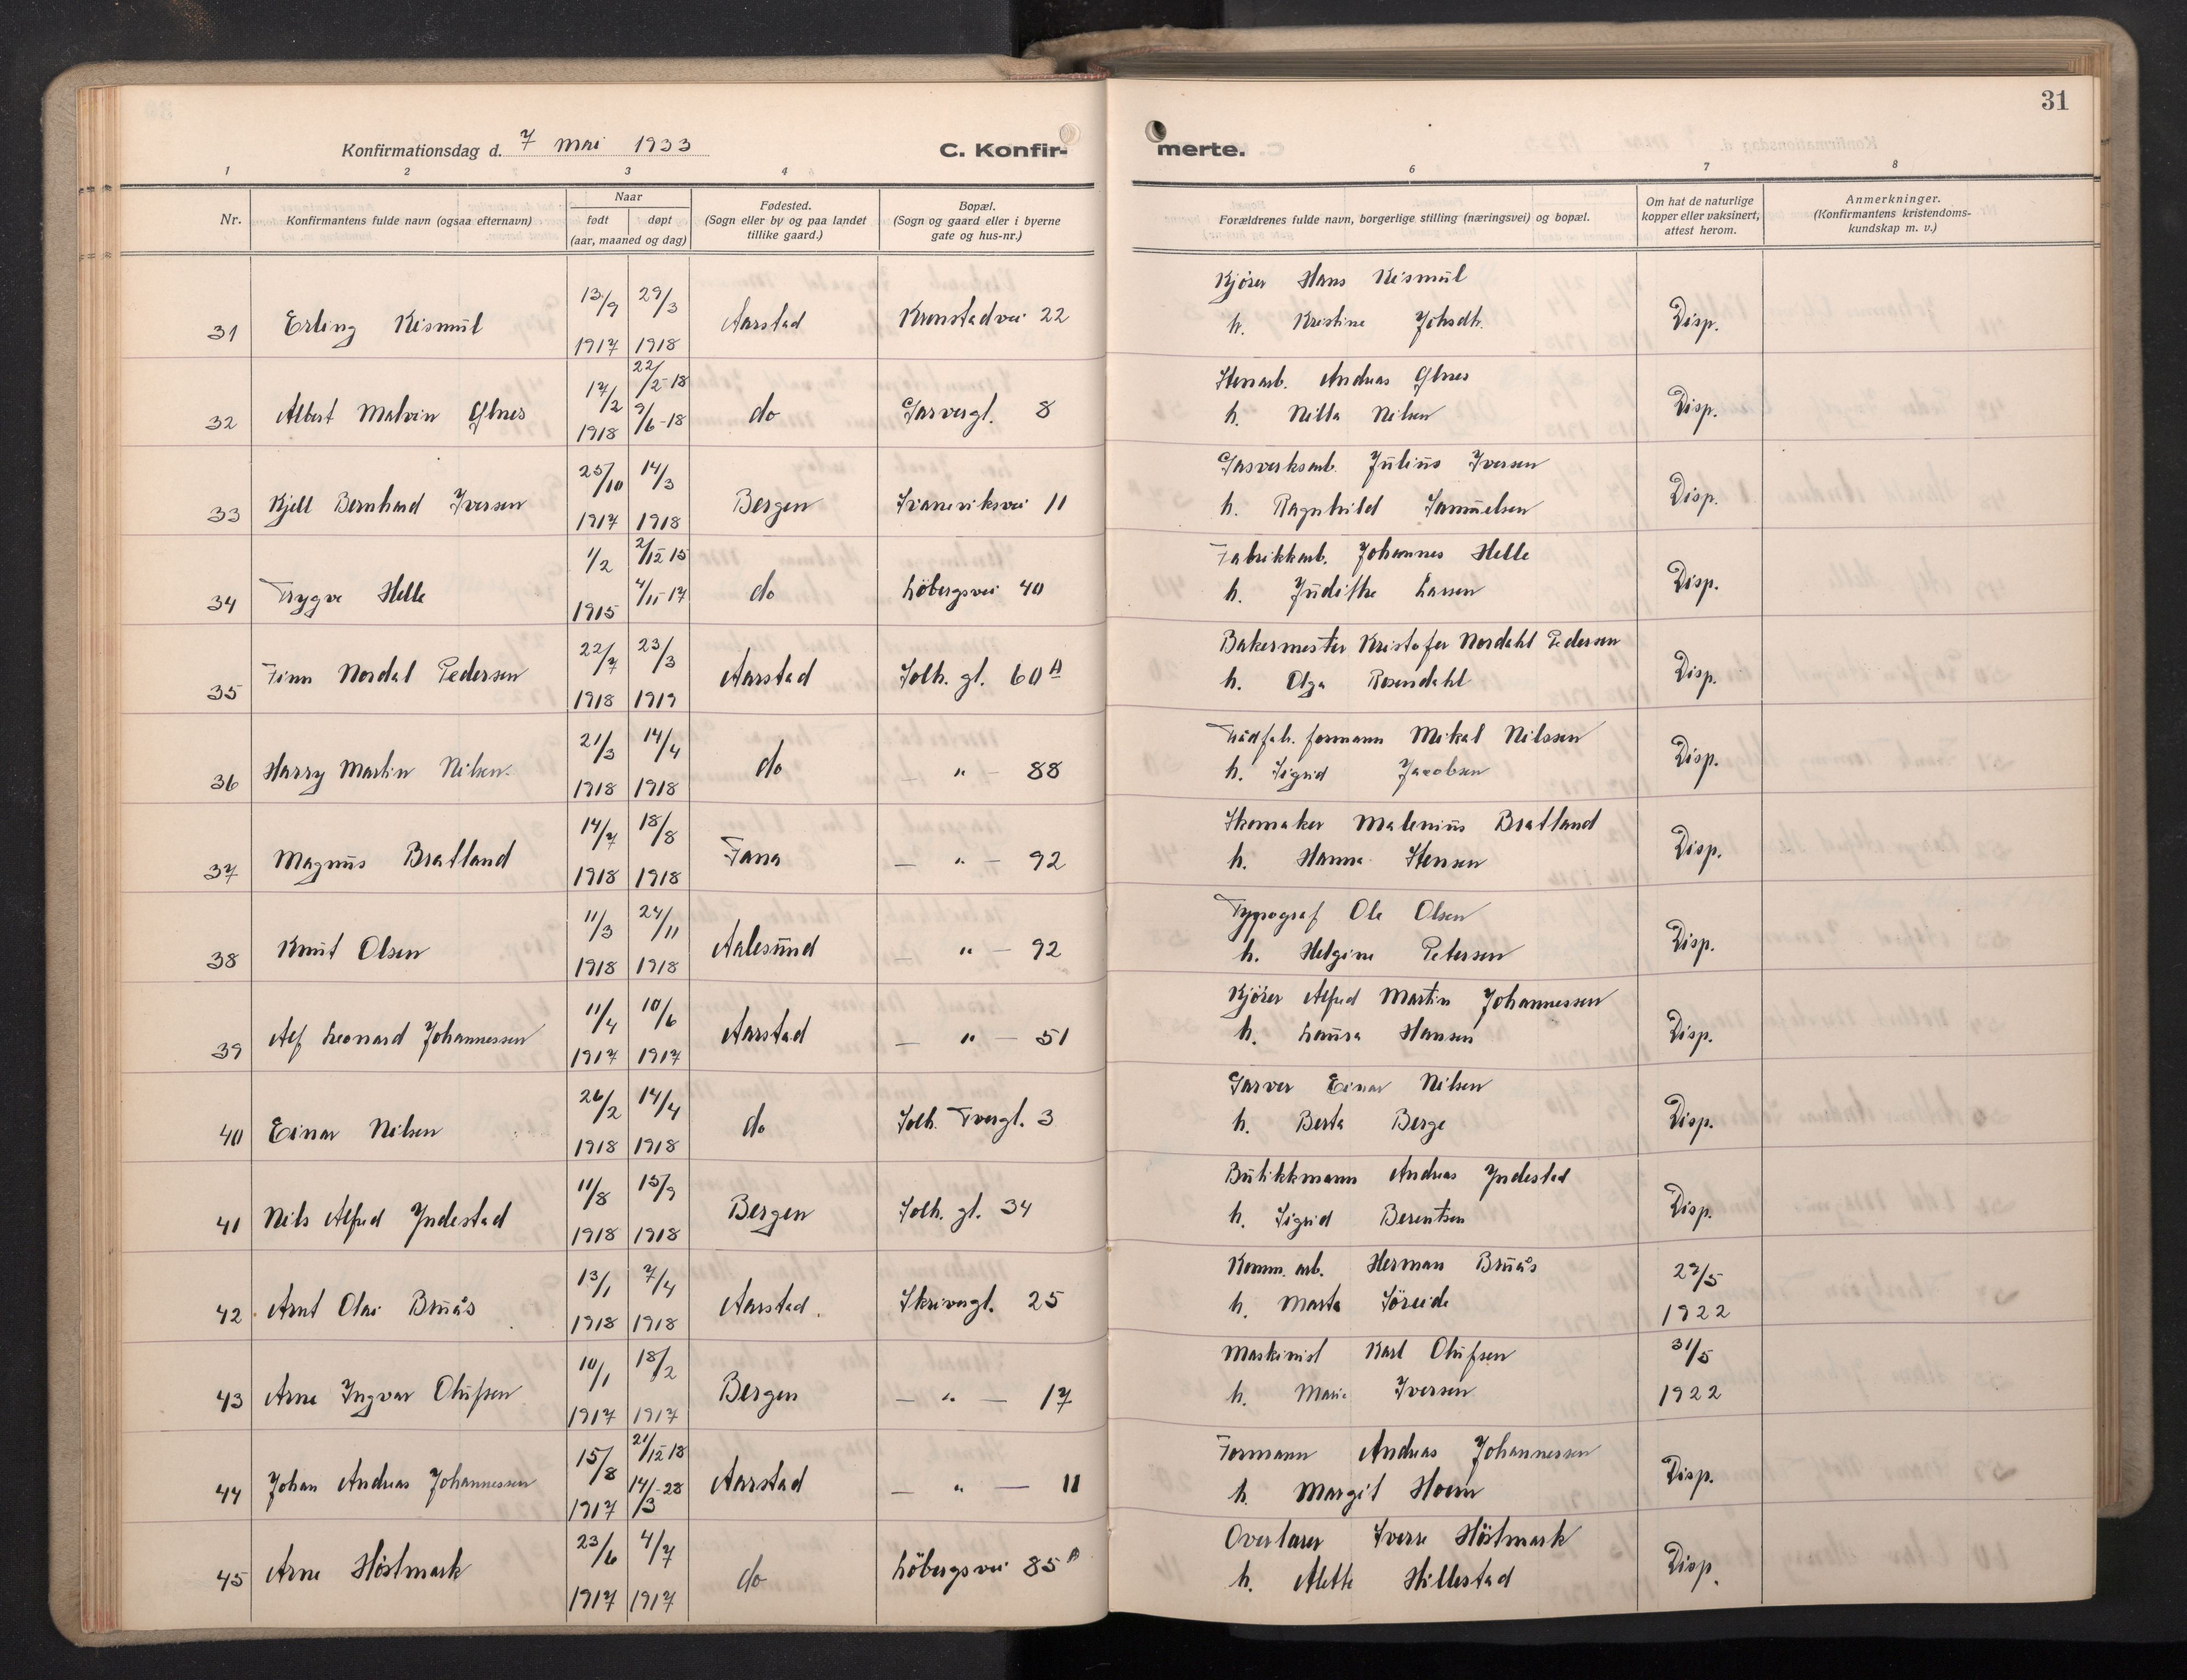 31
Konfirmationsdag d. 7 mai 1933 C. Konfir- merte.
1 2 3 4 6 7 8
Nr. Konfirmantens fulde navn (ogsaa efternavn) Naar født døpt (aar, maaned og dag) Fødested. (Sogn eller by og paa landet tillike gaard.) Bopæl. (Sogn og gaard eller i byerne gate og hus-nr.) Forældrenes fulde navn, borgerlige stilling (næringsvei) og bopæl. Om hat de naturlige kopper eller vaksinert, attest herom. Anmerkninger. (Konfirmantens kristendoms- kundskap m. v.)
13/9 29/3 Kjörer Hans Kismul
31 Erling Kismul Aarstad Kronstadvei 22 h. Kristine Johsdtr. Disp.
1917 1918
17/2 22/2-18 Stenarb. Andreas Glnes
32 Albert Malvin Glnes 1918 9/6-18 do Garvergt. 8 h. Nilla Nilsen Disp.
25/10 14/3 Gasverksarb. Julius Iversen
33 Kjell Bernhard Iversen Bergen Svaneviksvei 11 h. Ragnhild Samuelsen Disp.
1917 1918
1/2 2/12 15 Fabrikkarb. Johannes Helle
34 Trygve Helle 1915 4/11-17 do Löbergsvei 40 h. Judithe Larsen Disp.
22/7 23/3 Bakermester Kristofer Nordahl Pedersen
35 Finn Nordal Pedersen Aarstad Solh. gt. 60 A h. Olga Rosendahl Disp.
1918 1919
21/3 14/4 Trådfab. formann Mikal Nilssen
36 Harry Martin Nilsen. do — " — 88 h. Sigrid Jacobsen Disp.
1918 1918
14/7 18/8 Skomaker Malenius Bratland
37 Magnus Bratland Fana — " — 92 h. Hanna Stensen Disp.
1918 1918
11/3 24/11 Typograf Ole Olsen
38 Knut Olsen Aalesund — " — 92 h. Helgine Petersen Disp.
1918 1918
11/4 10/6 Kjörer Alfred Martin Johannessen
39 Alf Leonard Johannessen Aarstad — " — 51 h. Laura Hansen Disp.
1917 1917
26/2 14/4 Garver Einar Nilsen
40 Einar Nilsen do Solh. Tvergt. 3 h. Berta Berge Disp.
1918 1918
11/8 15/9 Butikkmann Andreas Yndestad
41 Nils Alfred Yndestad Bergen Solh. gt. 34 h. Sigrid Berentsen Disp.
1918 1918
13/1 7/4 Komm. arb. Herman Bruås 29/5
42 Arnt Olai Bruås Aarstad. Skrivergt. 25 h. Marta Söreide 1922
1918 1918
10/1 18/2 Maskinist Karl Olufsen 31/5
43 Arne Ingvar Olufsen Bergen — " — 17 h. Marie Iversen 1922
1917 1917
15/8 21/12 18 Formann Andreas Johannessen
44 Johan Andreas Johannessen 1917 14/3-28 Aarstad — " — 11 h. Margit Hoem Disp.
23/6 4/7 Overlærer Sverre Höstmark
45 Arne Höstmark do Löbergsvei 85 A h. Alette Hillestad Disp.
1917 1917